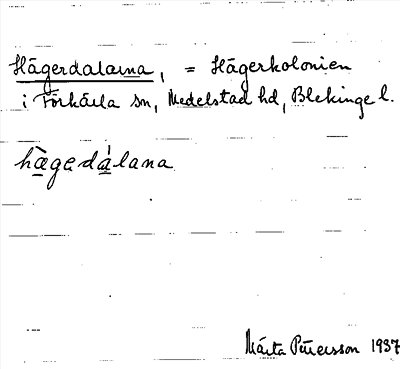 Hägerdalarna, = Hägerkolonien
i Förkärla sn, Medelstad hd, Blekinge l.
hägedàlana
Märta Petersson 1937